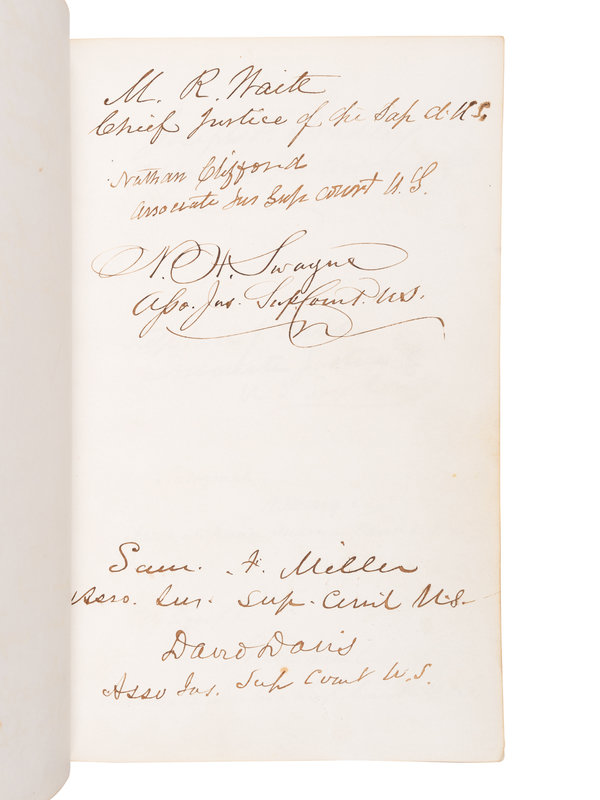 M. R. Waite
Chief Justice of the Sup Ct. U.S.
Nathan Clifford
Associate Jus Sup Court U.S.
N. H. Swayne
Asso. Jus. Sup Court. U.S.
Sam. F. Miller
Asso. Jus. Sup. Court U.S.
David Davis
Asso Jus. Sup Court U.S.